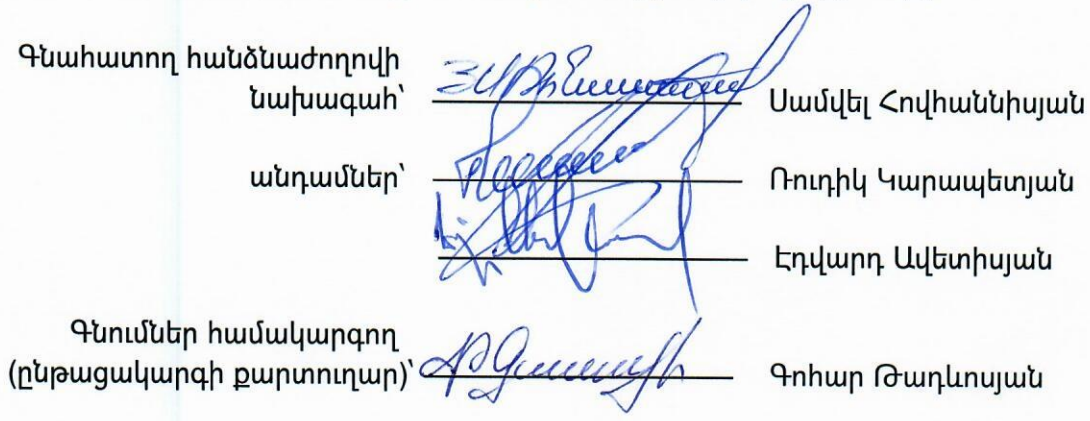 Գնահատող հանձնաժողովի
նախագահ՝ Սամվել Հովհաննիսյան
անդամներ՝ Ռուդիկ Կարապետյան
Էդվարդ Ավետիսյան
Գնումներ համակարգող
(ընթացակարգի քարտուղար)՝ Գոհար Թադևոսյան